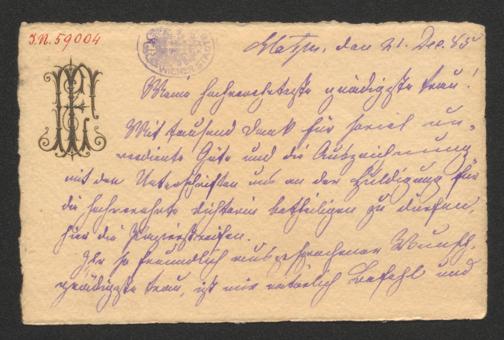 J.N. 59004
den 21. Dec. 85
Meine hochverehrteste gnädigste Frau!
Mit tausend Dank für soviel un-
verdiente Güte und die Auszeichnung
mit den Unterschriften uns an der Huldigung für
die hochverehrte Dichterin betheiligen zu dürfen,
hier die Papierstreifen.
Ihr so freundlich ausgesprochener Wunsch,
gnädigste Frau, ist mir natürlich Befehl und